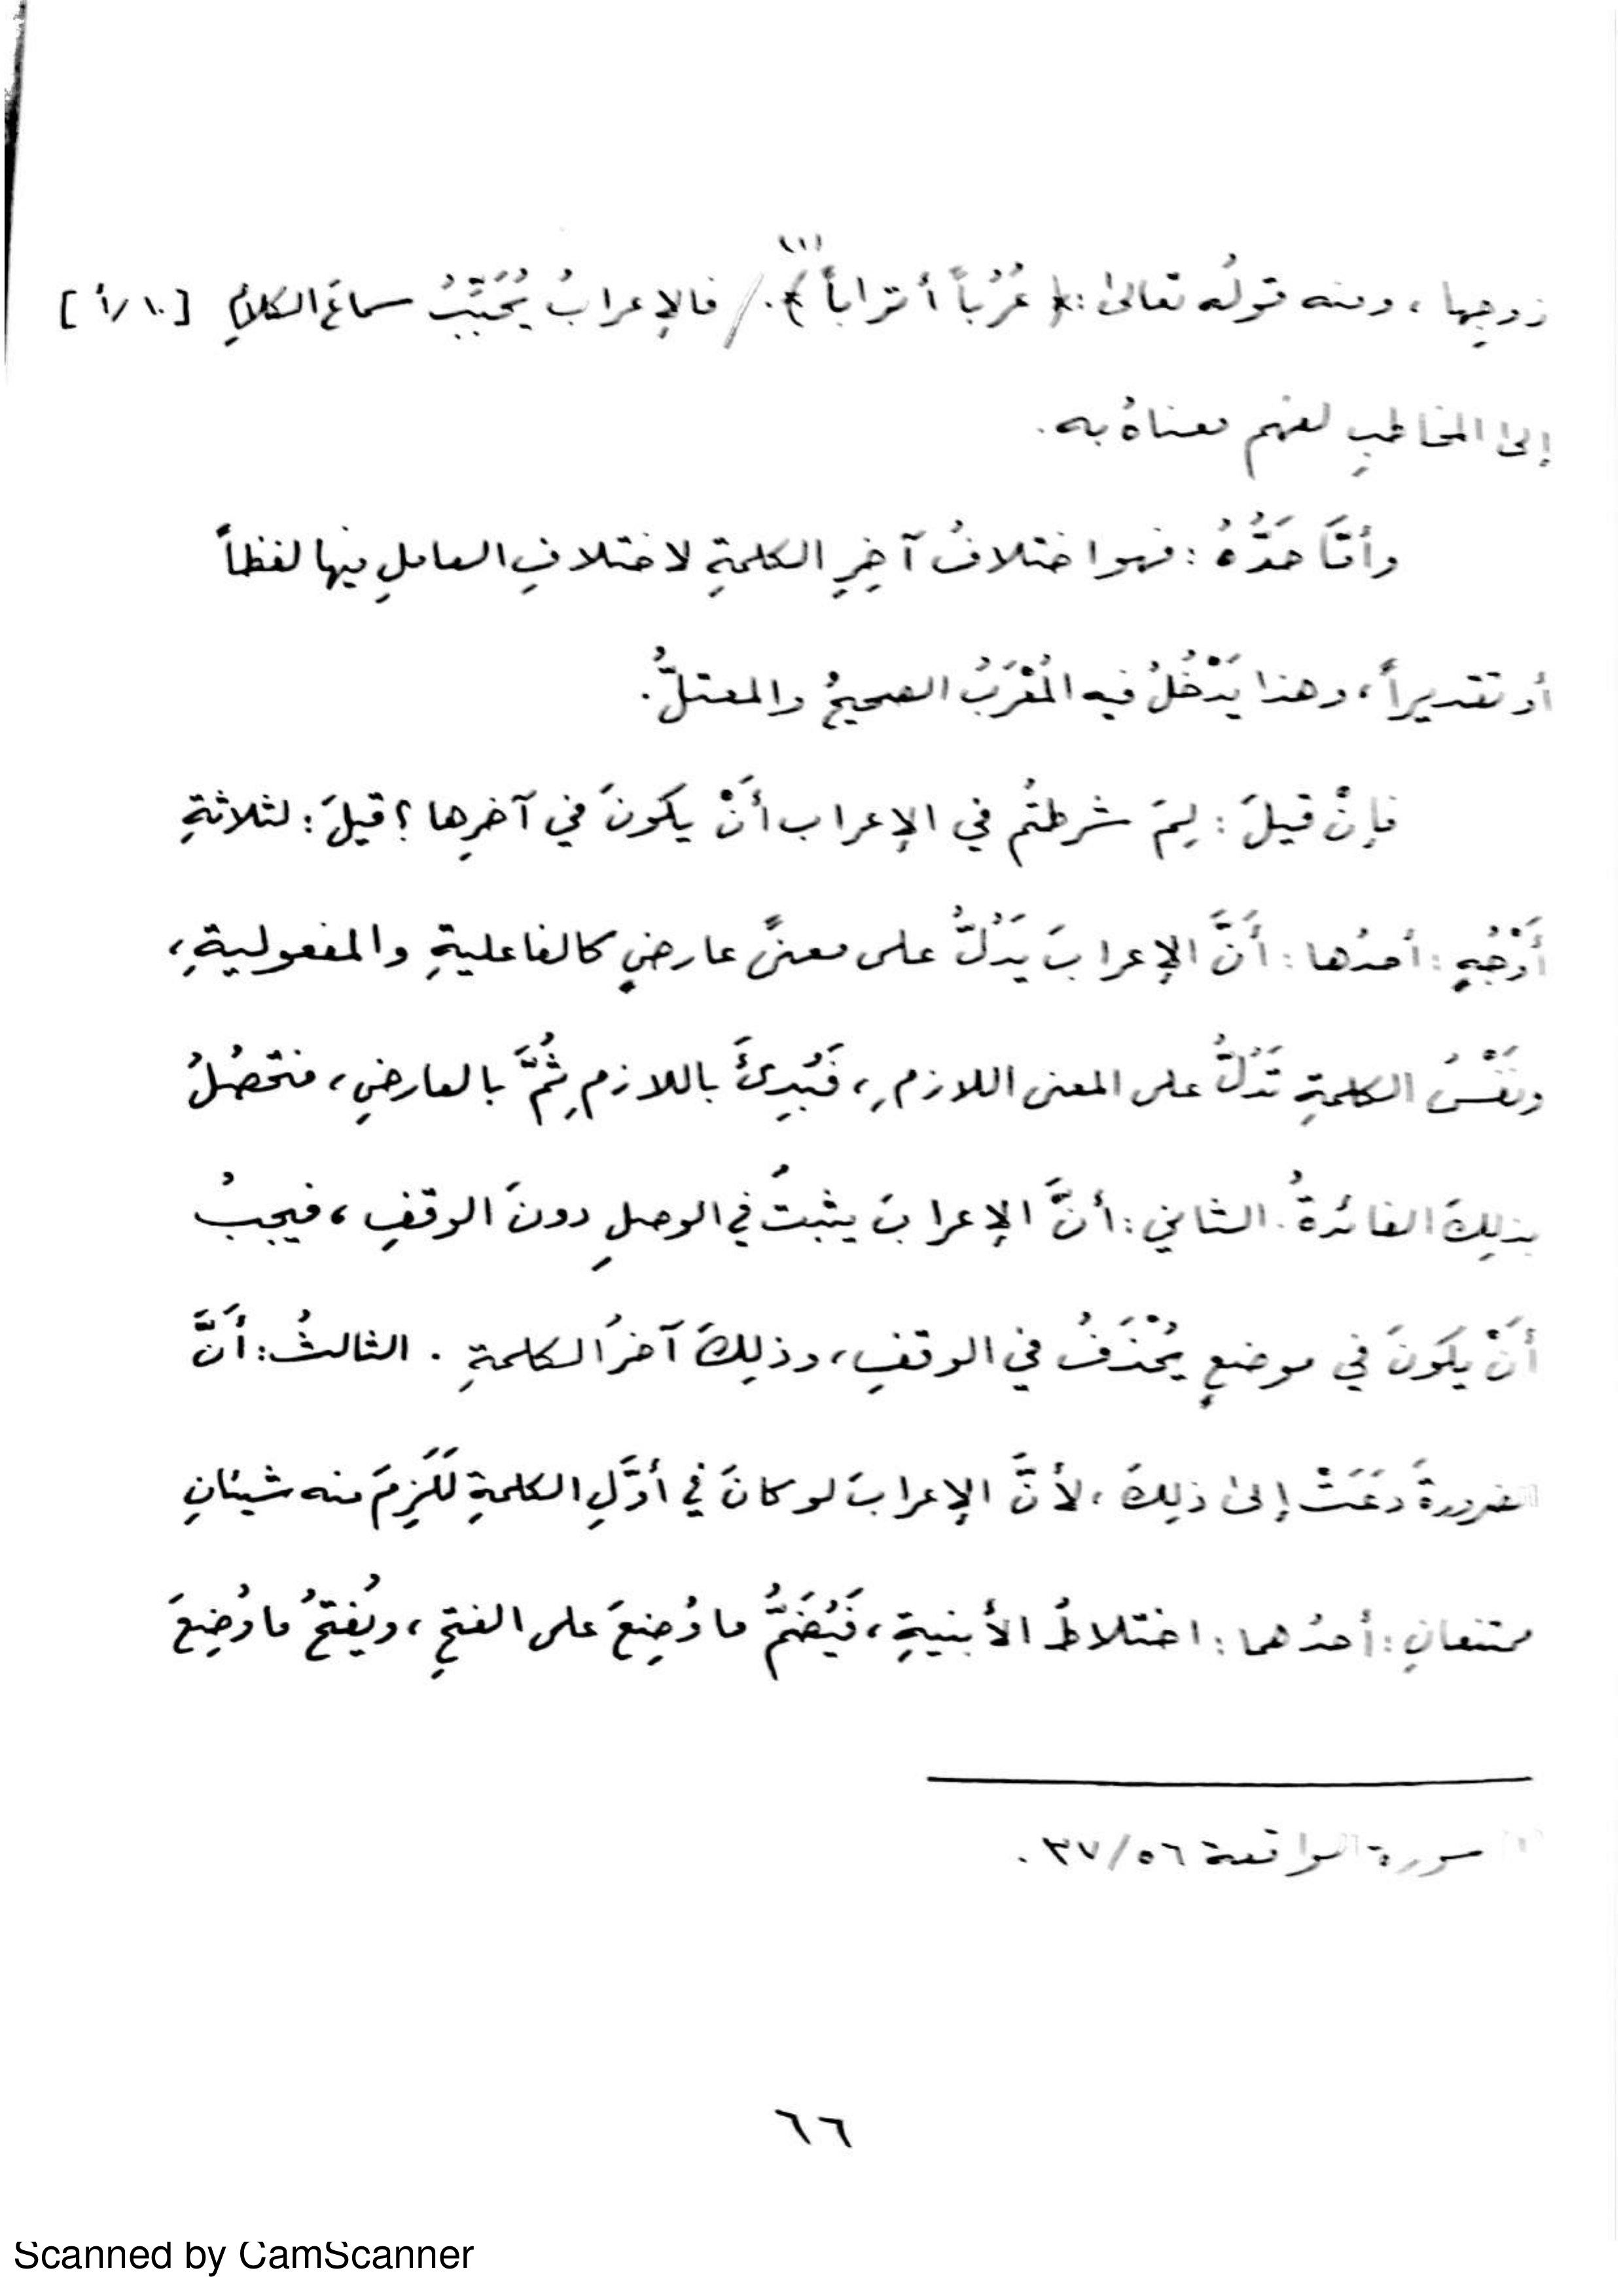 زوجِها ، ومنه قولُه تعالىٰ : ﴿ عُرُباً أتراباً ﴾(١) . / فالإعرابُ يُحَبِّبُ سماعَ الكلامِ [١٠/أ]
إلىٰ المخاطبِ لفهم معناهُ به .
وأمَّا حَدُّهُ : فهو اختلافُ آخِرِ الكلمةِ لاختلافِ العاملِ فيها لفظاً
أو تقديراً ، وهذا يَدْخُلُ فيه المُعْرَبُ الصحيحُ والمعتلُّ .
فإنْ قيلَ : لِمَ شرطتُم في الإعراب أنْ يكونَ في آخرِها ؟ قيلَ : لثلاثةِ
أوْجُهٍ : أحدُها : أنَّ الإعرابَ يَدُلُّ على معنىً عارضٍ كالفاعليةِ والمفعوليةِ ،
ونَفْسُ الكلمةِ تَدُلُّ على المعنى اللازمِ ، فَبُدِئَ باللازمِ ثُمَّ بالعارضِ ، فتحصُلُ
بذلِكَ الفائدةُ . الثاني : أنَّ الإعرابَ يثبتُ في الوصلِ دونَ الوقفِ ، فيجبُ
أنْ يكونَ في موضعٍ يُحْذَفُ في الوقفِ ، وذلِكَ آخرُ الكلمةِ . الثالثُ : أنَّ
الضرورةَ دَعَتْ إلىٰ ذلِكَ ، لأنَّ الإعرابَ لو كانَ في أوَّلِ الكلمةِ لَلَزِمَ منه شيئانِ
ممتنعانِ : أحدُهما : اختلاطُ الأبنيةِ ، فَيُضَمُّ ما وُضِعَ على الفتحِ ، ويُفتحُ ما وُضِعَ
(١) سورة الواقعة ٥٦/٣٧ .
٦٦
Scanned by CamScanner